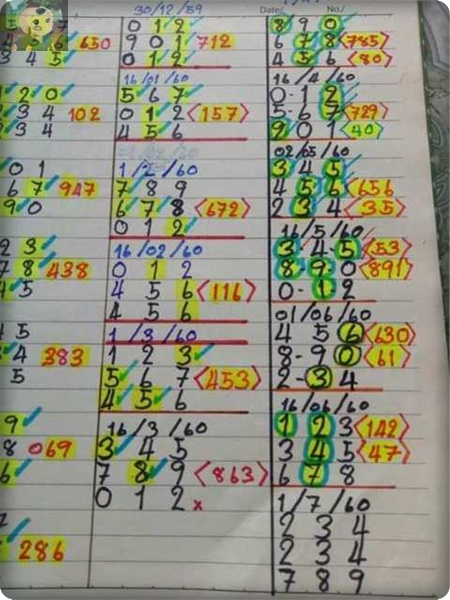 5 7
4 5 6 650
3 4 5
1 2 0
2 3 4 102
2 3 4
0 1
6 7 947
9 0
2 3
7 8 438
4 5
4 5
3 4 383
5
9
8 069
6
7
286
30/12/59
0 1 2
9 0 1 712
0 1 2
16/01/60
5 6 7
0 1 2 <157>
4 5 6
1/2/60
7 8 9
6 7 8 <672>
0 1 2
16/02/60
0 1 2
4 5 6 <116>
4 5 6
1/3/60
1 2 3
5 6 7 <453>
4 5 6
16/3/60
3 4 5
7 8 9 <863>
0 1 2 x
Date/ No./
8 9 0
6 7 8 <785>
4 5 6 <80>
16/4/60
0-1 2
5-6 7 <729>
9 0 1 <40>
02/05/60
3 4 5
4 5 6 <656>
2 3 4 <35>
16/5/60
3-4-5 <53>
8-9-0 <891>
0-1 2
01/06/60
4 5 6 <630>
8-9 0 <61>
2-3 4
16/06/60
1 2 3 <142>
3 4 5 <47>
6 7 8
1/7/60
2 3 4
2 3 4
7 8 9